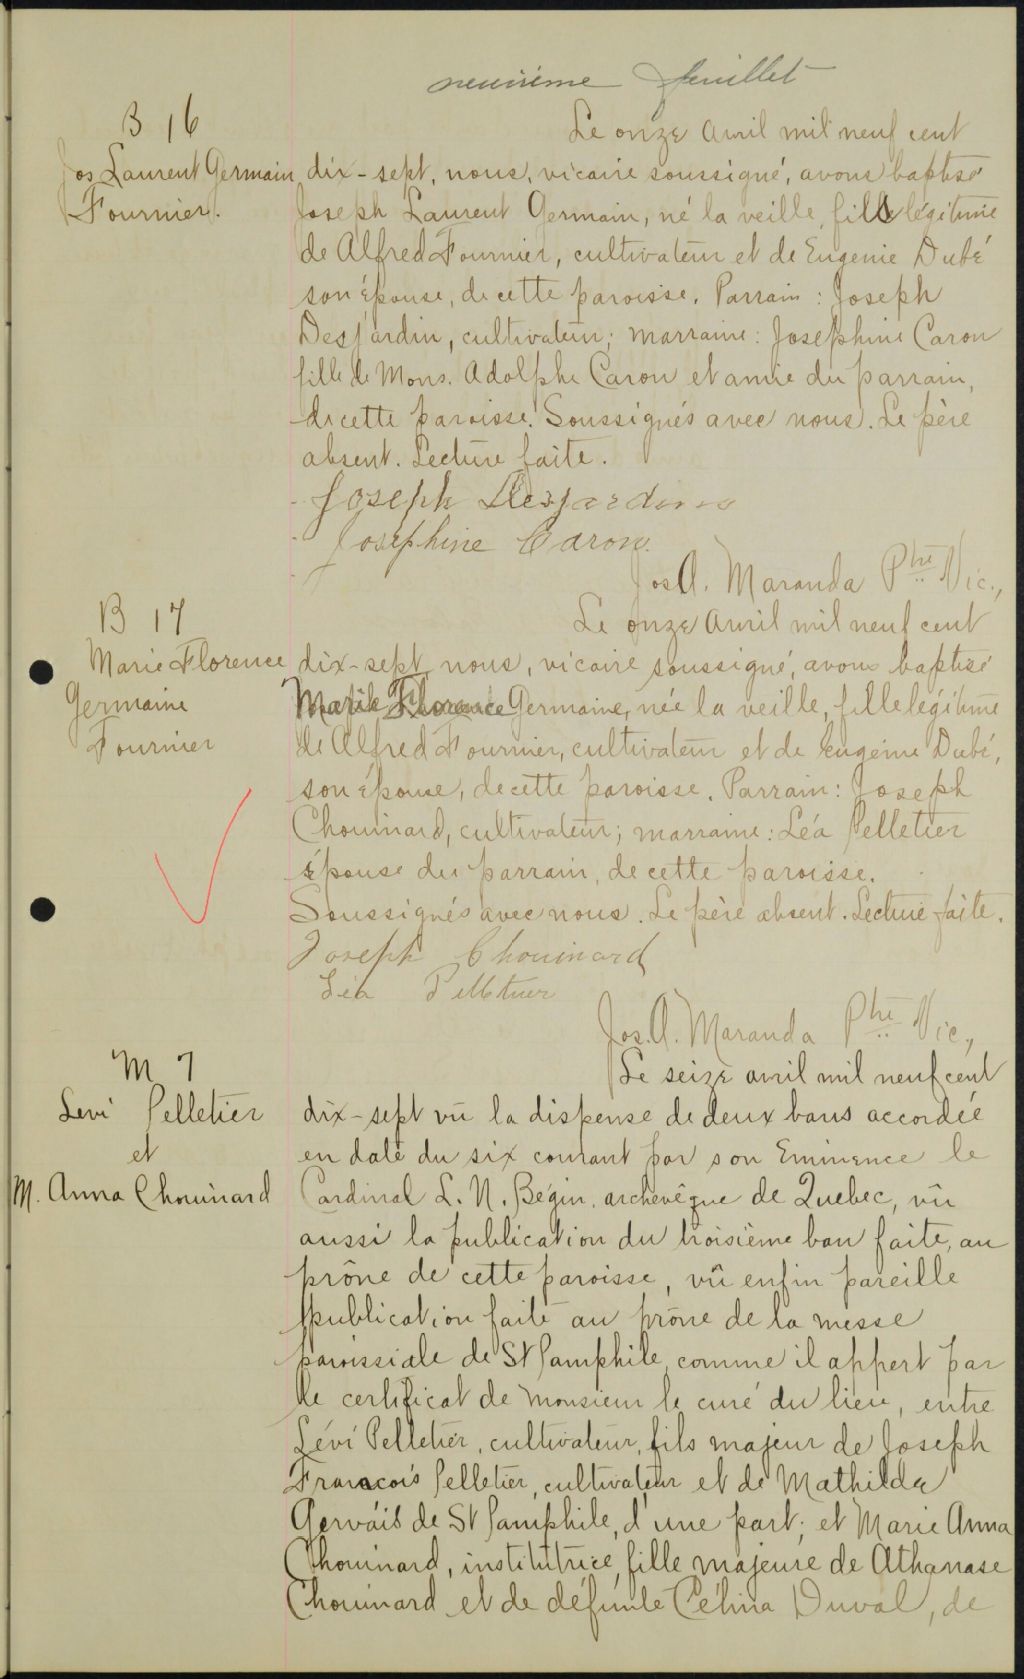 neuvième feuillet
B 16
Jos Laurent Germain
Fournier.
Le onze avril mil neuf cent
dix-sept, nous, vicaire soussigné, avons baptisé
Joseph Laurent Germain, né la veille, fils légitime
de Alfred Fournier, cultivateur et de Eugenie Dubé
son épouse, de cette paroisse. Parrain : Joseph
Desjardin, cultivateur; marraine: Josephine Caron
fille de Mons. Adolphe Caron et amie du parrain,
de cette paroisse. Soussignés avec nous. Le père
absent. Lecture faite.
Joseph Desjardins
Josephine Caron.
Jos A. Maranda Ptre Vic.,
B 17
Marie Florence
Germaine
Fournier
Le onze avril mil neuf cent
dix-sept nous, vicaire soussigné, avons baptisé
Marie Florence Germaine, née la veille, fille légitime
de Alfred Fournier, cultivateur et de Eugénie Dubé,
son épouse, de cette paroisse. Parrain: Joseph
Chouinard, cultivateur; marraine: Léa Pelletier
épouse du parrain, de cette paroisse.
Soussignés avec nous. Le père absent. Lecture faite.
Joseph Chouinard
Léa Pelletier
Jos. A. Maranda Ptre Vic.,
M 7
Levi Pelletier
et
M. Anna Chouinard
Le seize avril mil neuf cent
dix-sept vû la dispense de deux bans accordée
en date du six courant par son Eminence le
Cardinal L. N. Bégin, archevêque de Quebec, vû
aussi la publication du troisième ban faite, au
prône de cette paroisse, vû enfin pareille
publication faite au prône de la messe
paroissiale de St Pamphile, comme il appert par
le certificat de Monsieur le curé du lieu, entre
Lévi Pelletier, cultivateur, fils majeur de Joseph
Francois Pelletier, cultivateur et de Mathilde
Gervais de St Pamphile, d'une part; et Marie Anna
Chouinard, institutrice, fille majeure de Athanase
Chouinard et de défunte Célina Duval, de